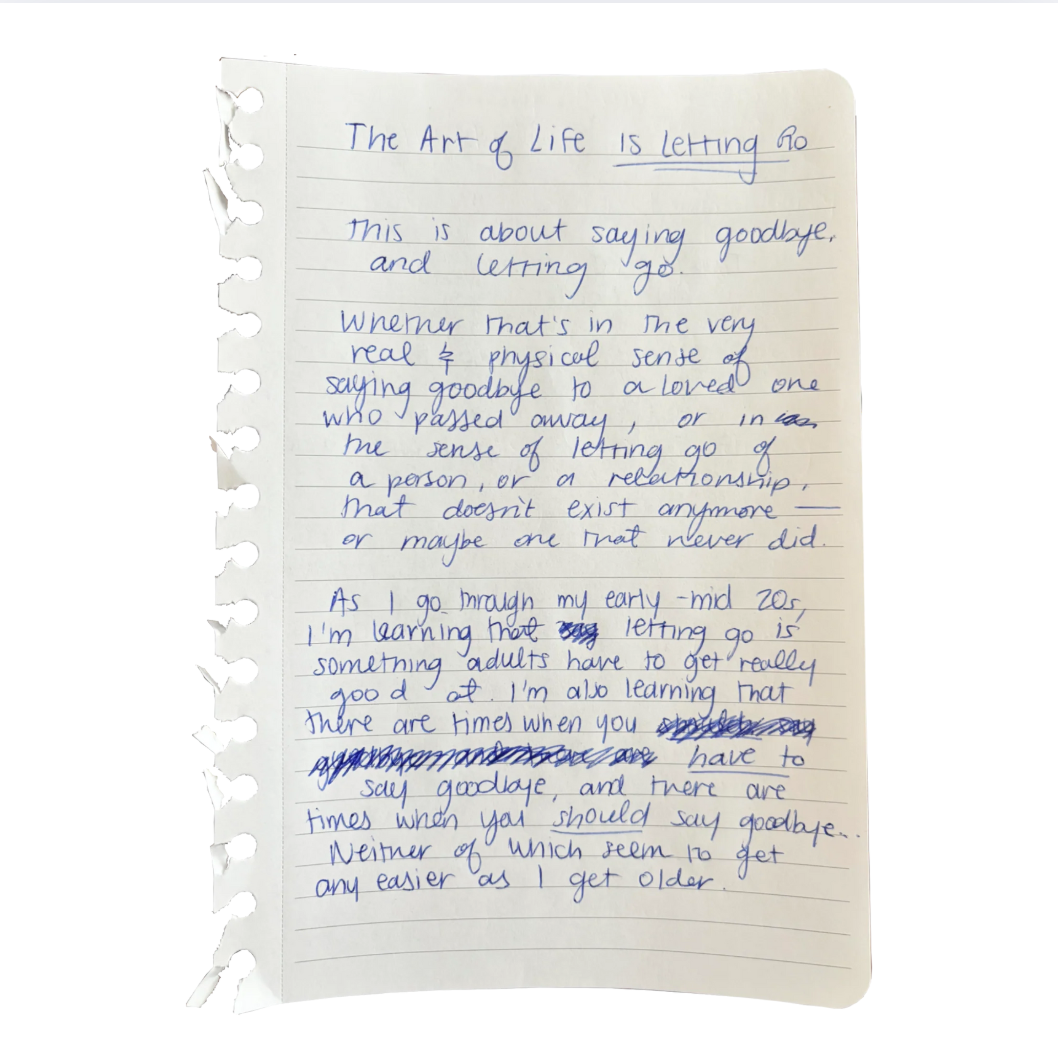 The Art of Life is letting Go
this is about saying goodbye,
and letting go.
Whether that's in the very
real & physical sense of
saying goodbye to a loved one
who passed away, or in
the sense of letting go of
a person, or a relationship,
that doesn't exist anymore —
or maybe one that never did.
As I go through my early-mid 20s,
I'm learning that letting go is
something adults have to get really
good at. I'm also learning that
there are times when you
have to
say goodbye, and there are
times when you should say goodbye...
Neither of which seem to get
any easier as I get older.